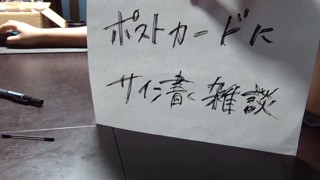 ポストカードに
サイン書く雑談